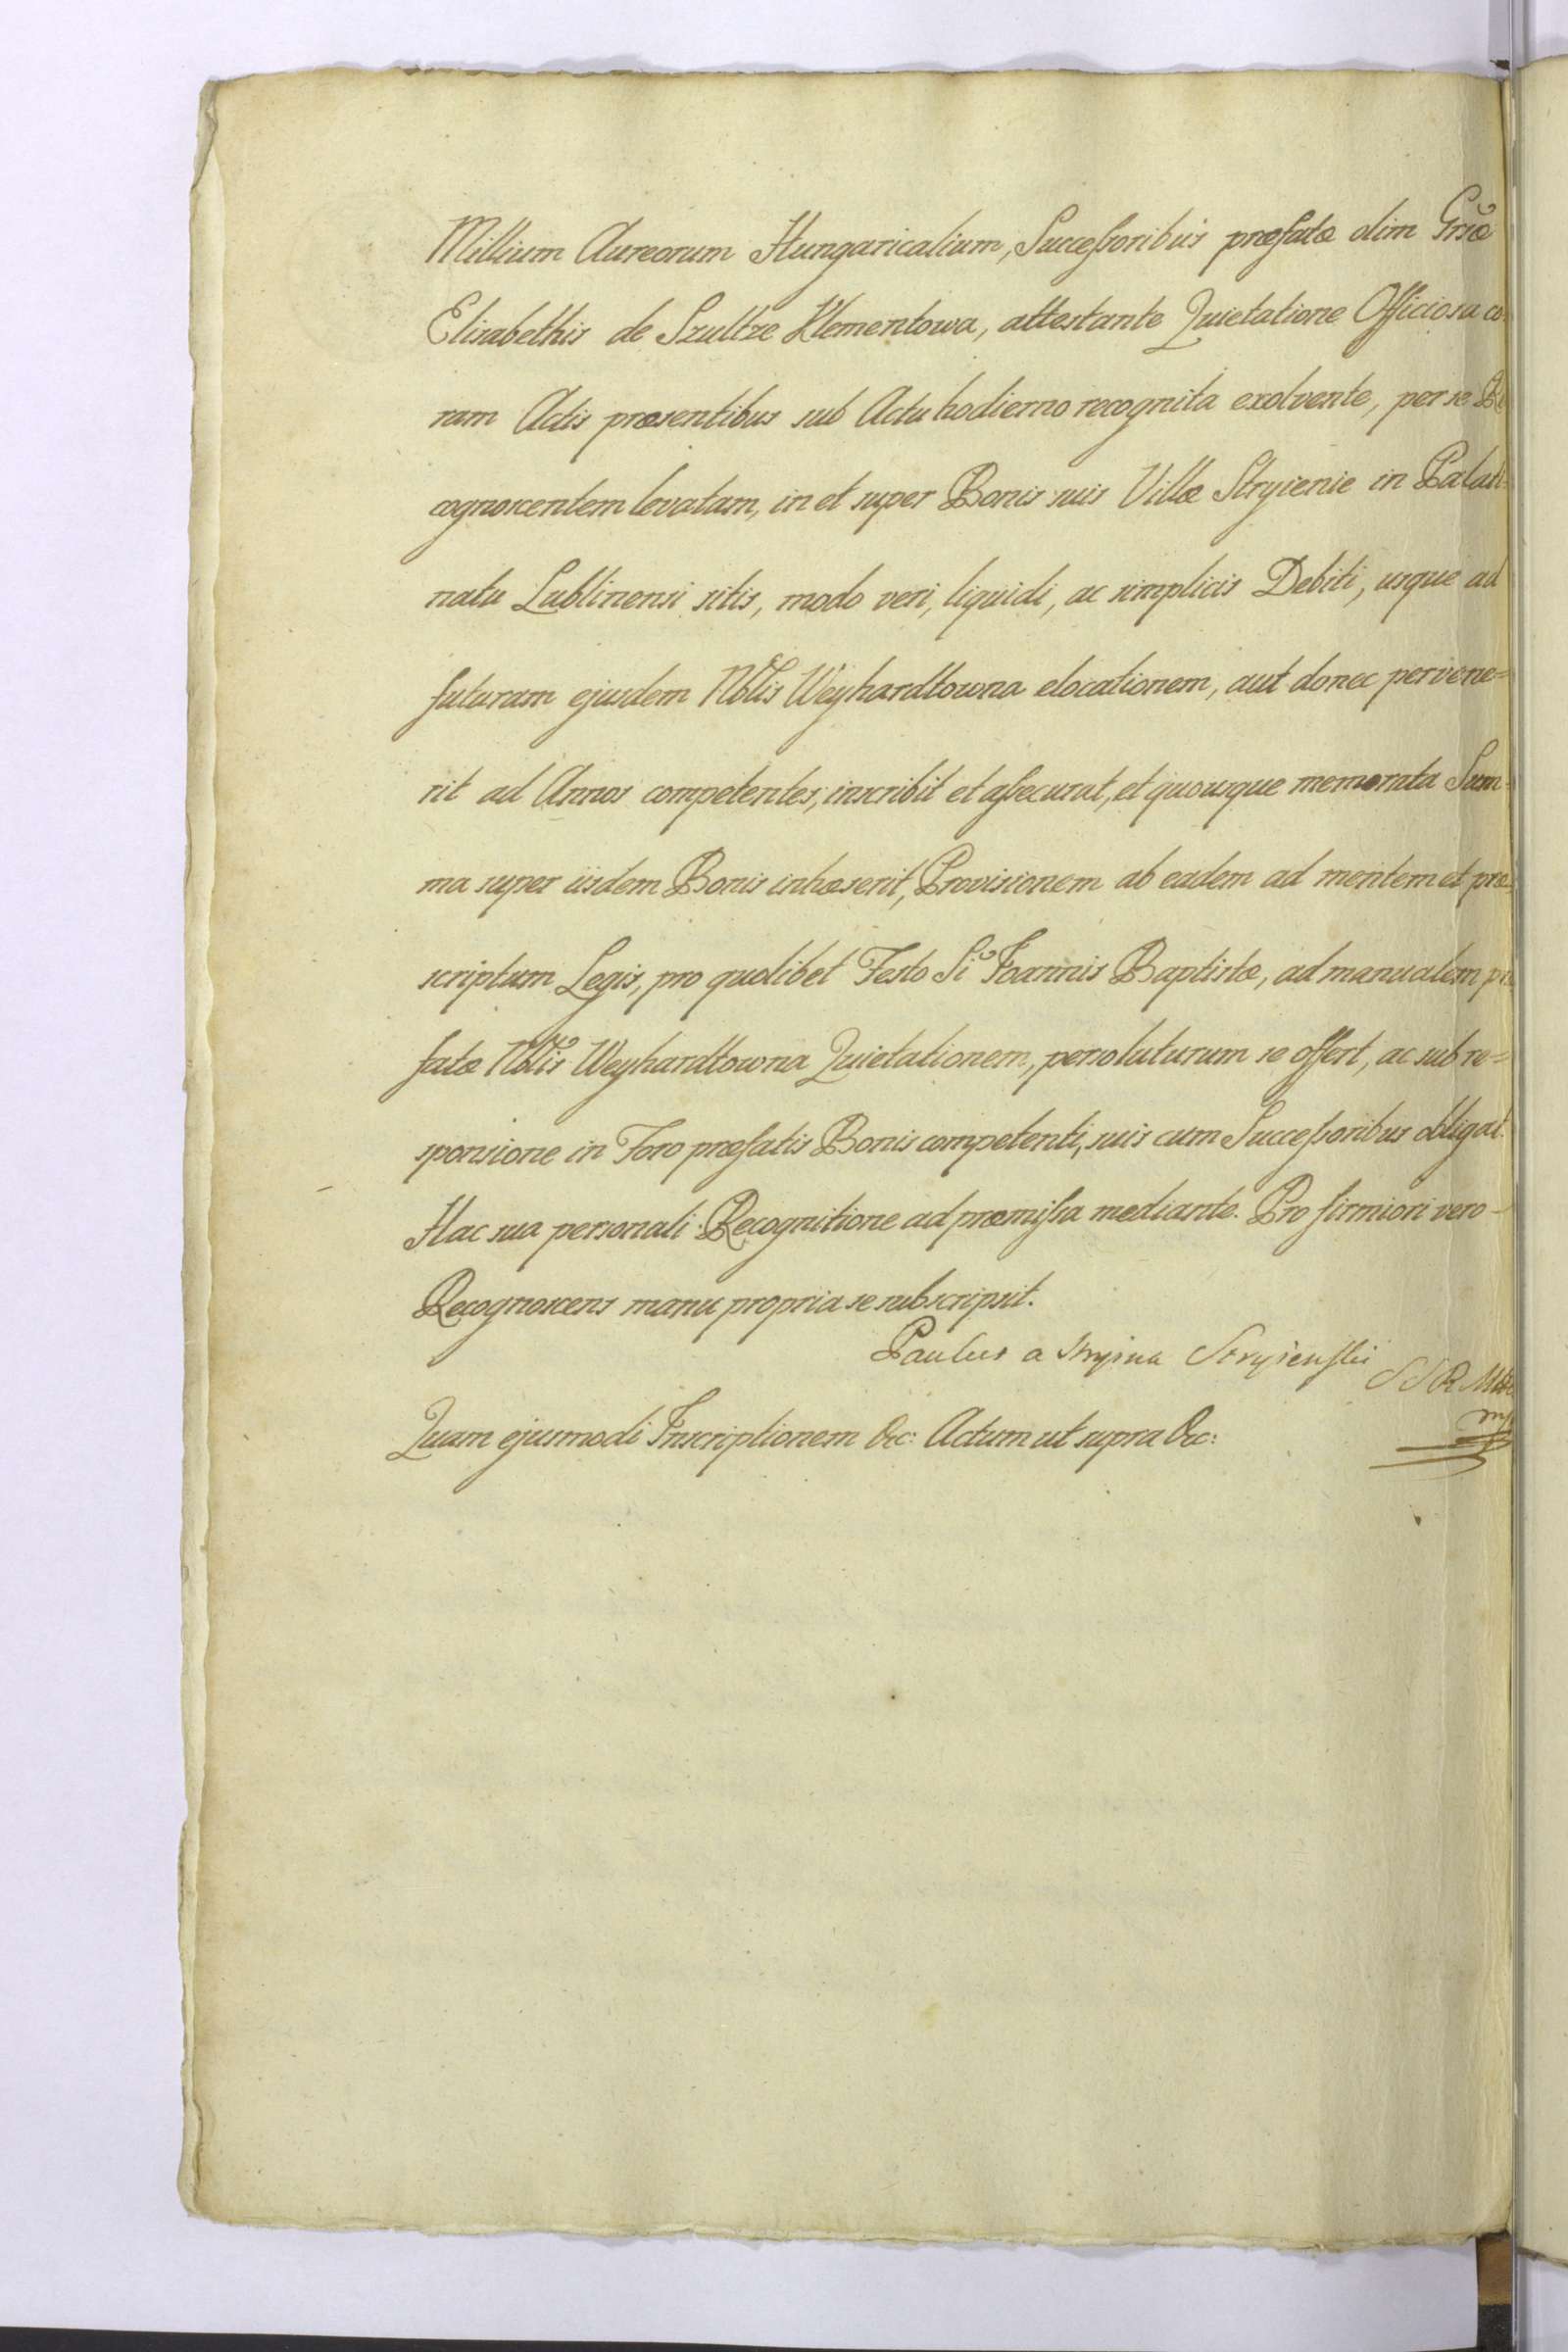 Millium Aureorum Hungaricalium, Successoribus præfatæ olim Grsæ
Elisabethis de Szultze Klementowa, attestante Quietatione Officiosa co-
ram Actis præsentibus sub Actu hodierno recognita exolvente, per se Re
cognoscentem levatam, in et super Bonis suis Villæ Stryienie in Palati
natu Lublinensi sitis, modo veri, liquidi, ac simplicis Debiti, usque ad
futuram ejusdem Nblis Weyhardtowna elocationem, aut donec pervene=
rit ad Annos competentes, inscribit et assecurat, et quousque memorata Sum=
ma super iisdem Bonis inhæserit, Provisionem ab eadem ad mentem et præ=
scriptum Legis, pro quolibet Festo Si Joannis Baptistæ, ad manualem præ
fatæ Nblis Weyhardtowna Quietationem, persoluturum se offert, ac sub re=
sponsione in Foro præfatis Bonis competenti, suis cum Successoribus obligat.
Hac sua personali Recognitione ad præmissa mediante. Pro firmiori vero
Recognoscens manu propria se subscripsit.
Paulus a Stryina Stryienski
Quam ejusmodi Inscriptionem &c: Actum ut supra &c: